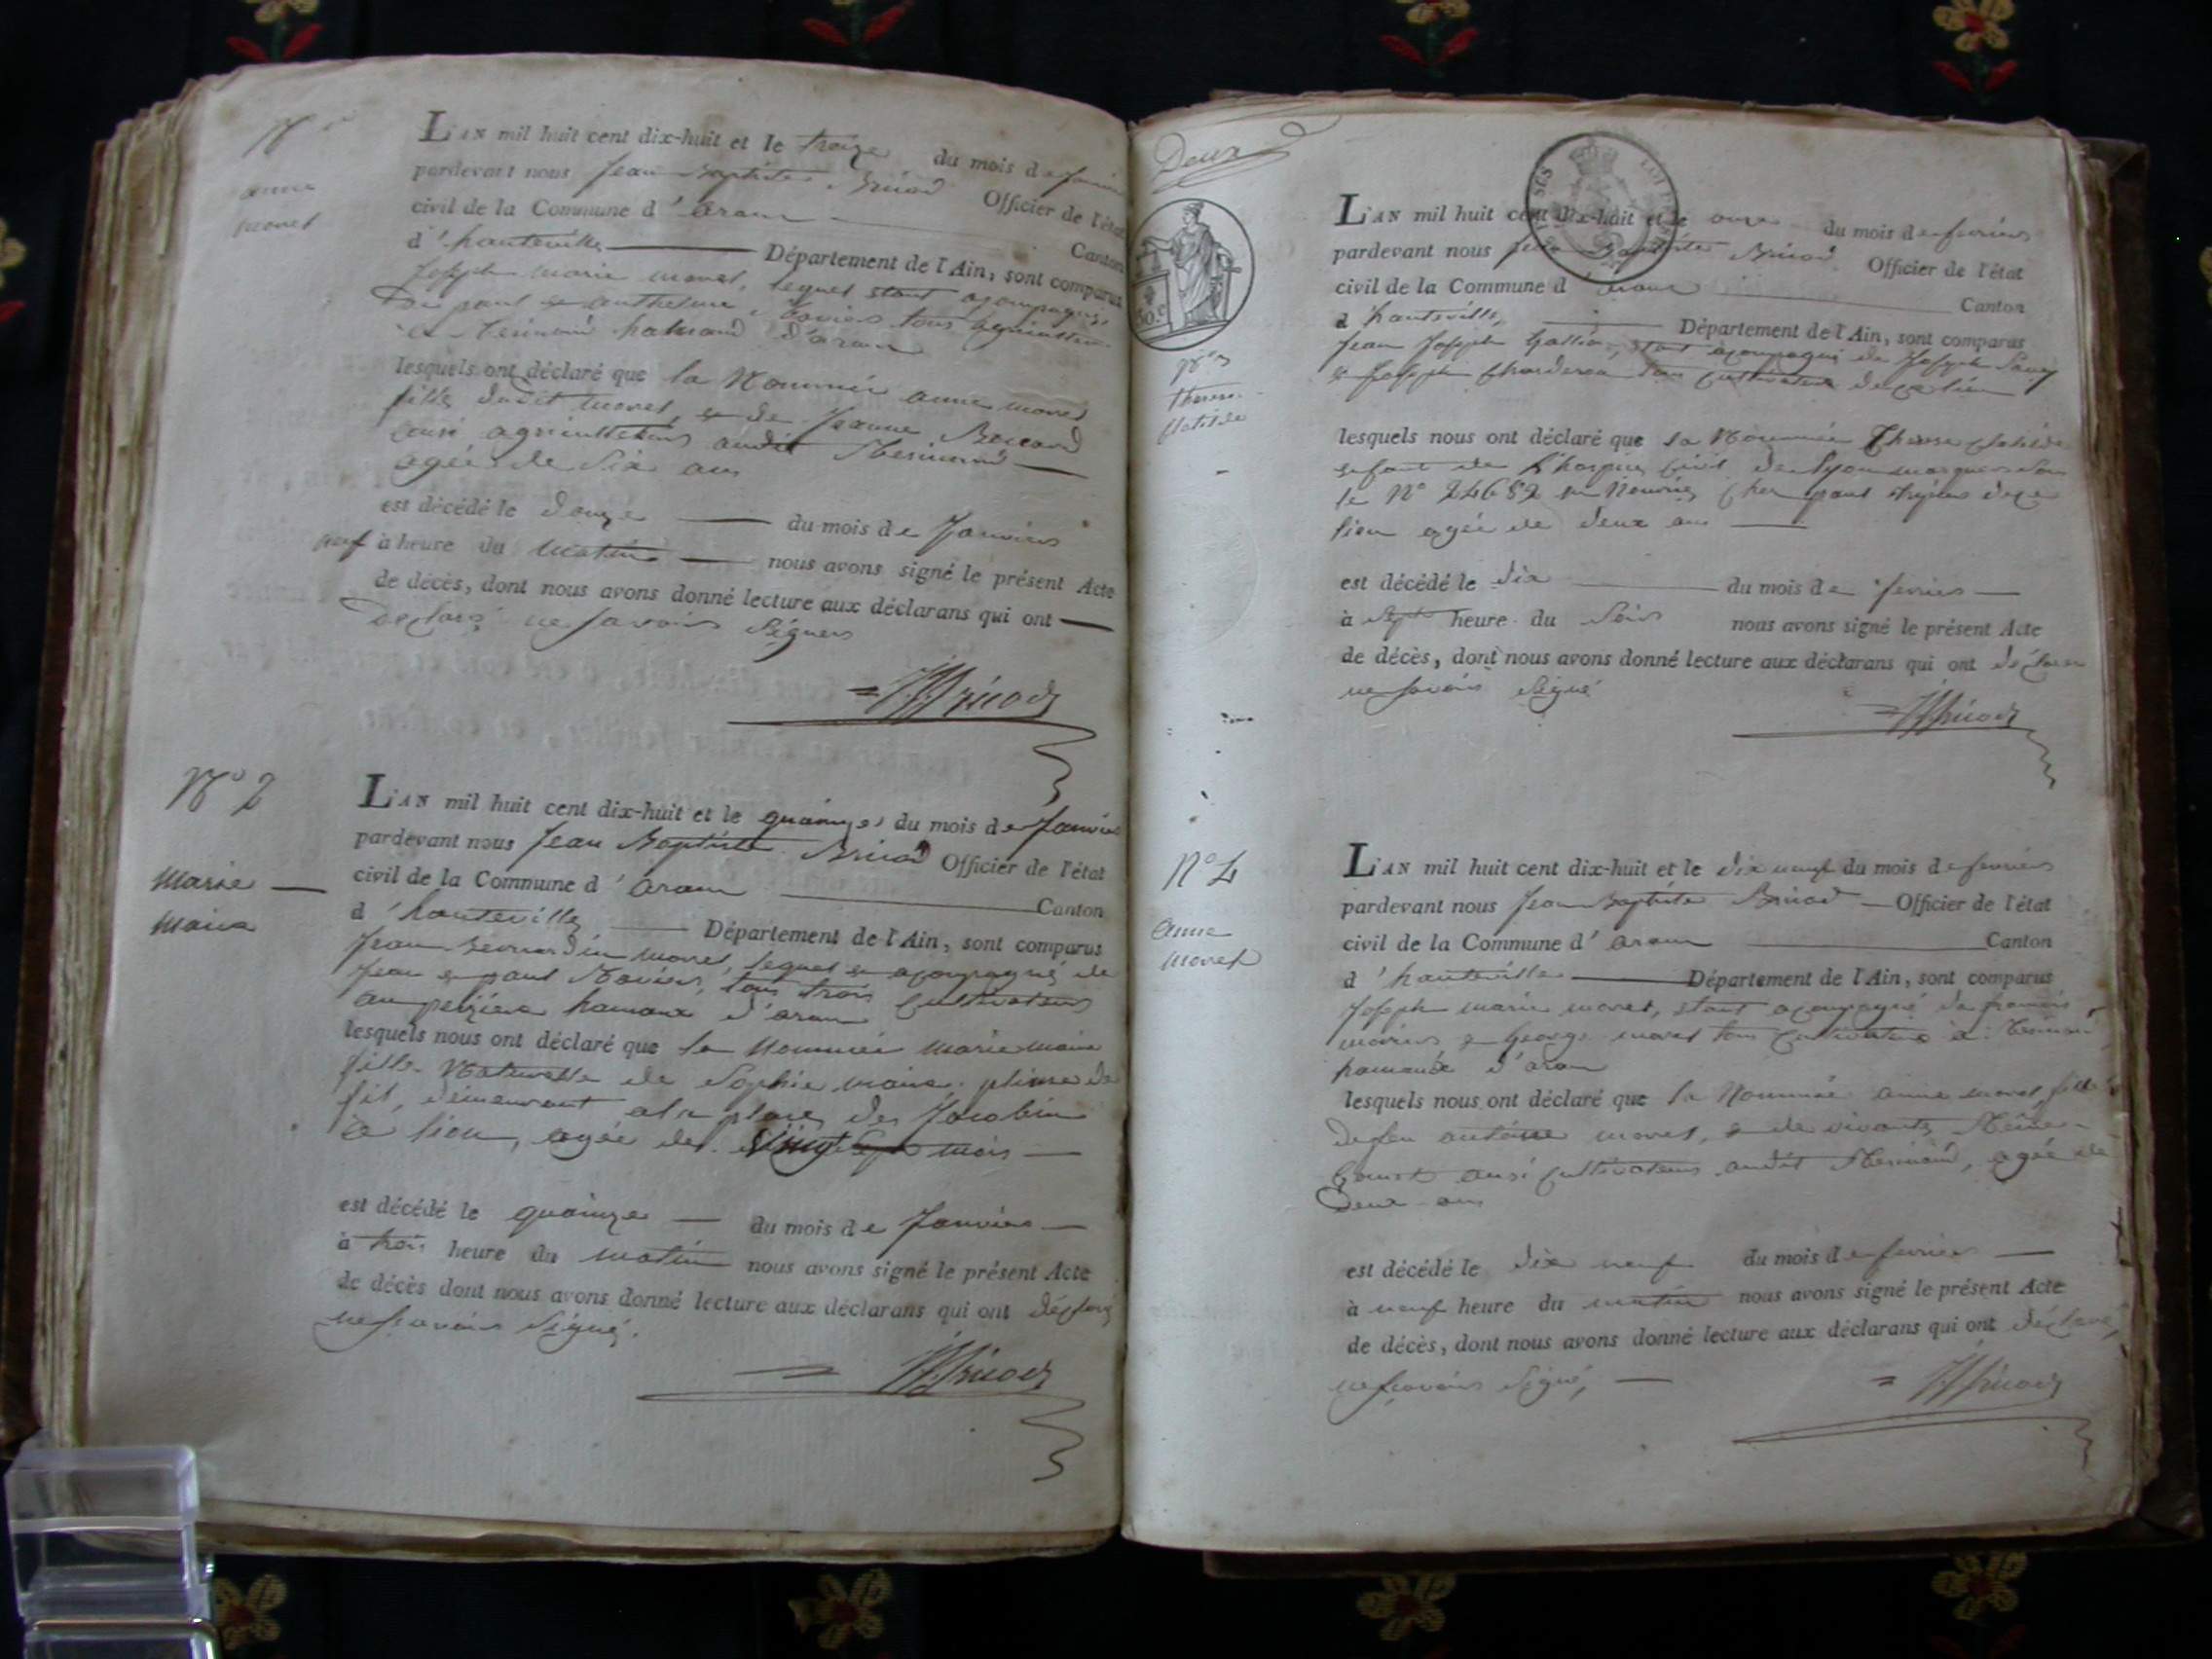 N° 1er
anne
moret
L'AN mil huit cent dix-huit et le treize du mois de Janvier
pardevant nous Jean Baptiste Bricod Officier de l'état
civil de la Commune d' aranc Canton
d' hauteville Département de l'Ain, sont comparus
Joseph marie moret, lequel étant acompagné
De paul & anthelme tous agriculteurs
hamaud d'aranc
lesquels ont déclaré que la Nommée anne moret
fille dudit moret, & de Jeanne
ausi agriculteurs audit
agée de Six ans
est décédé le Douze du mois de Janvier
neuf à heure du matin nous avons signé le présent Acte
de décès, dont nous avons donné lecture aux déclarans qui ont
Déclaré ne savoir Signer
JBBricod
N° 2
Marie
Maria
L'AN mil huit cent dix-huit et le quainze du mois de Janvier
pardevant nous Jean Baptiste Bricod Officier de l'état
civil de la Commune d' aranc Canton
d' hauteville Département de l'Ain, sont comparus
Jean Bernardin moret, lequel & acompagné de
Jean & paul tous trois Cultivateurs
au hamaux d'aranc
lesquels nous ont déclaré que la Nommée Marie
fille Naturelle de Sophie de
demeurant a la place des Jacobin
a lion, agée de vingt Sept mois
est décédé le quainze du mois de Janvier
à trois heure du matin nous avons signé le présent Acte
de décès dont nous avons donné lecture aux déclarans qui ont déclaré
ne savoir Signé.
JBBricod
Deux
50 c
N° 3
Therese
Clotilde
L'AN mil huit cent dix-huit et le onze du mois de fevrier
pardevant nous Jean Baptiste Bricod Officier de l'état
civil de la Commune d' aranc Canton
d' hauteville Département de l'Ain, sont comparus
Jean Joseph étant acompagné de Joseph
& Joseph tous Cultivateurs de ce lieu
lesquels nous ont déclaré que la Nommée Therese Clotilde
enfant de l'hospice Civil de Lyon
le N° 24682 en Nourice Chez paul de ce
lieu agée de deux ans
est décédé le dix du mois de fevrier
à Sept heure du Soir nous avons signé le présent Acte
de décès, dont nous avons donné lecture aux déclarans qui ont déclaré
ne savoir Signé
JBBricod
N° 4
anne
moret
L'AN mil huit cent dix-huit et le dix neuf du mois de fevrier
pardevant nous Jean Baptiste Bricod Officier de l'état
civil de la Commune d' aranc Canton
d' hauteville Département de l'Ain, sont comparus
Joseph marie moret, étant acompagné de francois
& George moret tous Cultivateurs à
hamaux d'aranc
lesquels nous ont déclaré que la Nommée anne moret fille
De feu moret, & de vivante
ausi Cultivateurs audit agée de
Deux ans
est décédé le dix neuf du mois de fevrier
à neuf heure du matin nous avons signé le présent Acte
de décès, dont nous avons donné lecture aux déclarans qui ont déclaré
ne savoir Signé,
JBBricod